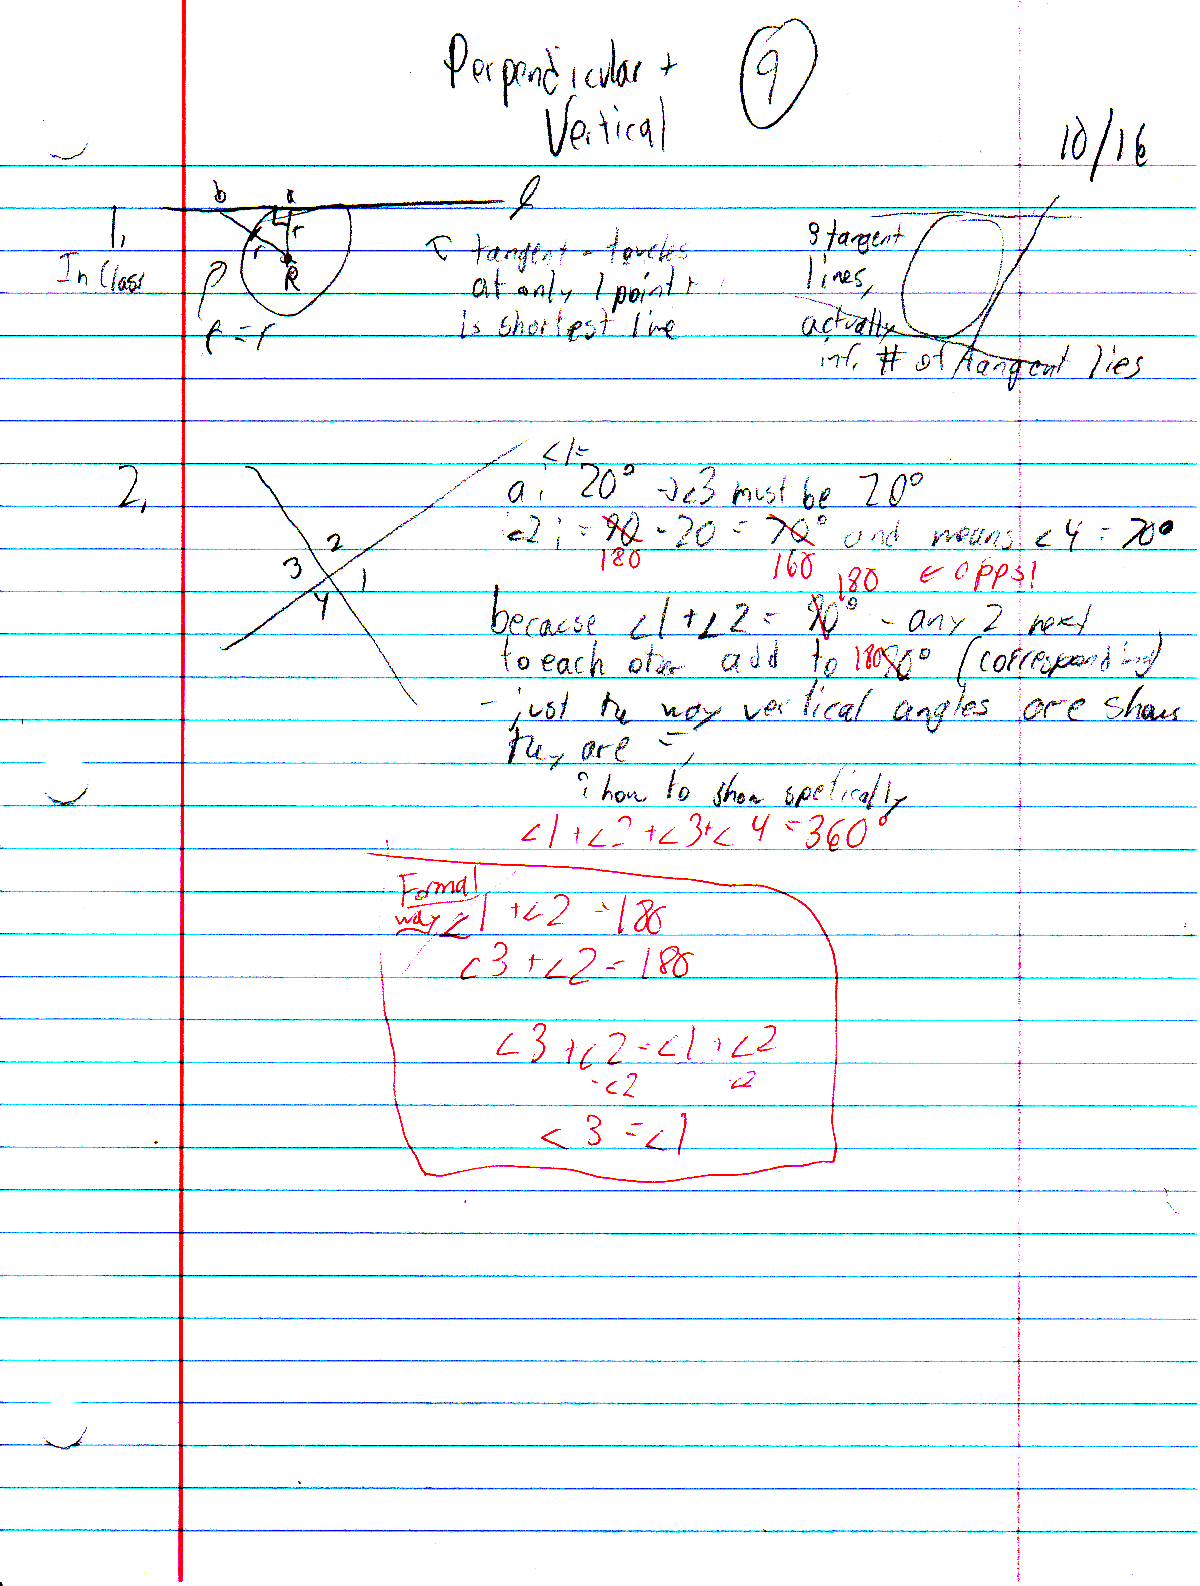 Perpendicular +
Vertical
9
10/16
1,
In Class
b a l
r
r
R
r = r
tangent - touches
at only 1 point +
is shortest line
3 tangent
lines,
actually
inf. # of tangent lies
2,
2
3
1
4
<1=
a; 20° → <3 must be 20°
<2; = 90 - 20 = 70° and means <4 = 70°
180 160 180 ← opps!
because <1+<2 = 90° - any 2 next
to each other add to 180 90° (corresponding)
- just the way vertical angles are shown
they are =,
? how to show spetically
<1+<2+<3+<4=360°
Formal
way
<1 +<2 =180
<3 +<2 = 180
<3 +<2 = <1 +<2
-<2 -<2
<3 = <1